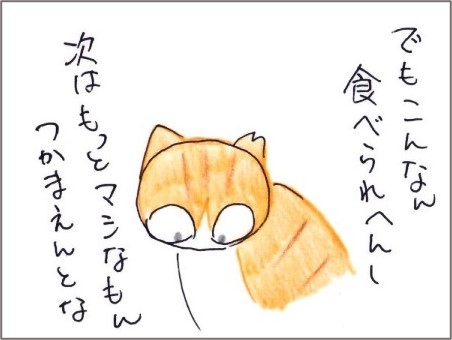 でもこんなん
食べられへんし
次はもっとマシなもん
つかまえんとな